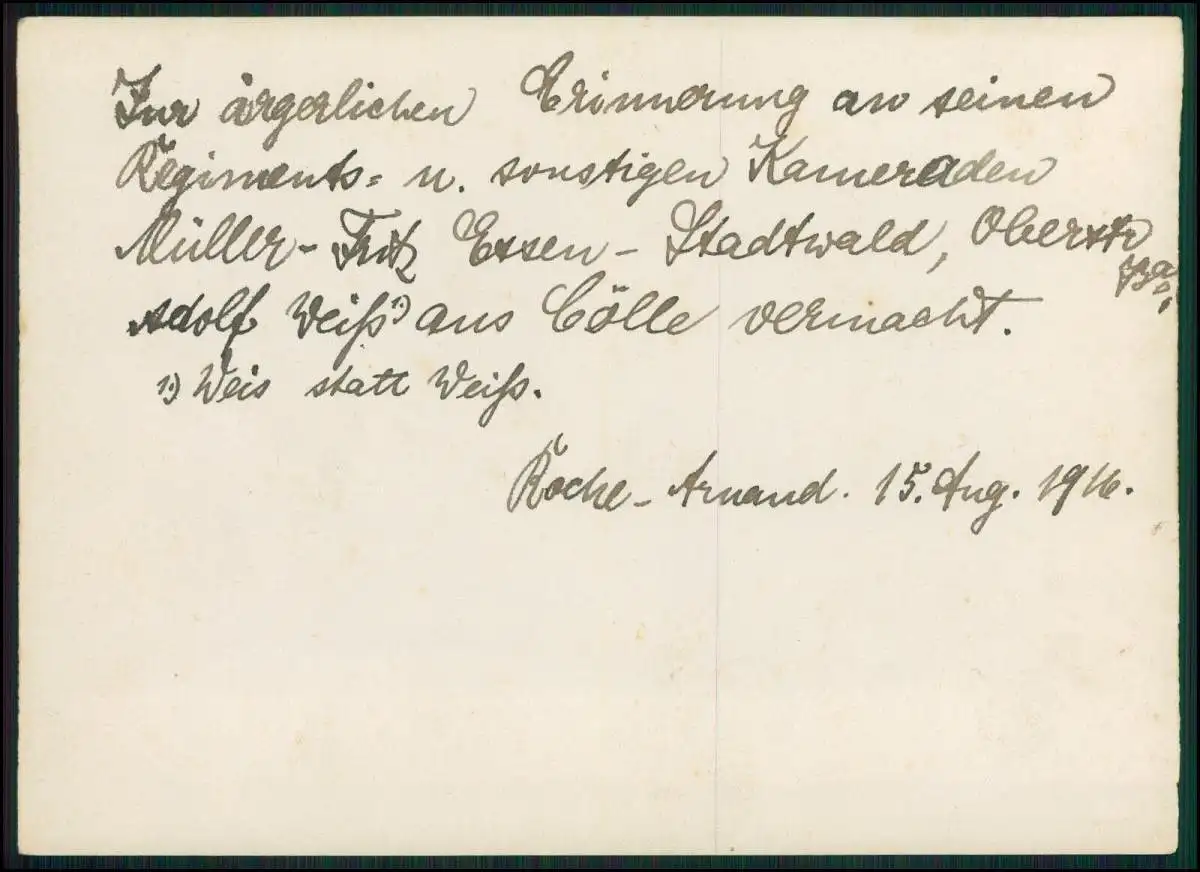 Zur ärgerlichen Erinnerung an seinen
Regiments= u. sonstigen Kameraden
Müller-Fritz Essen-Stadtwald, Oberstr
Adolf Weiß¹⁾ aus Cölle vermacht.
1.) Weis statt Weiß.
Roche-Arnand. 15. Aug. 1916.